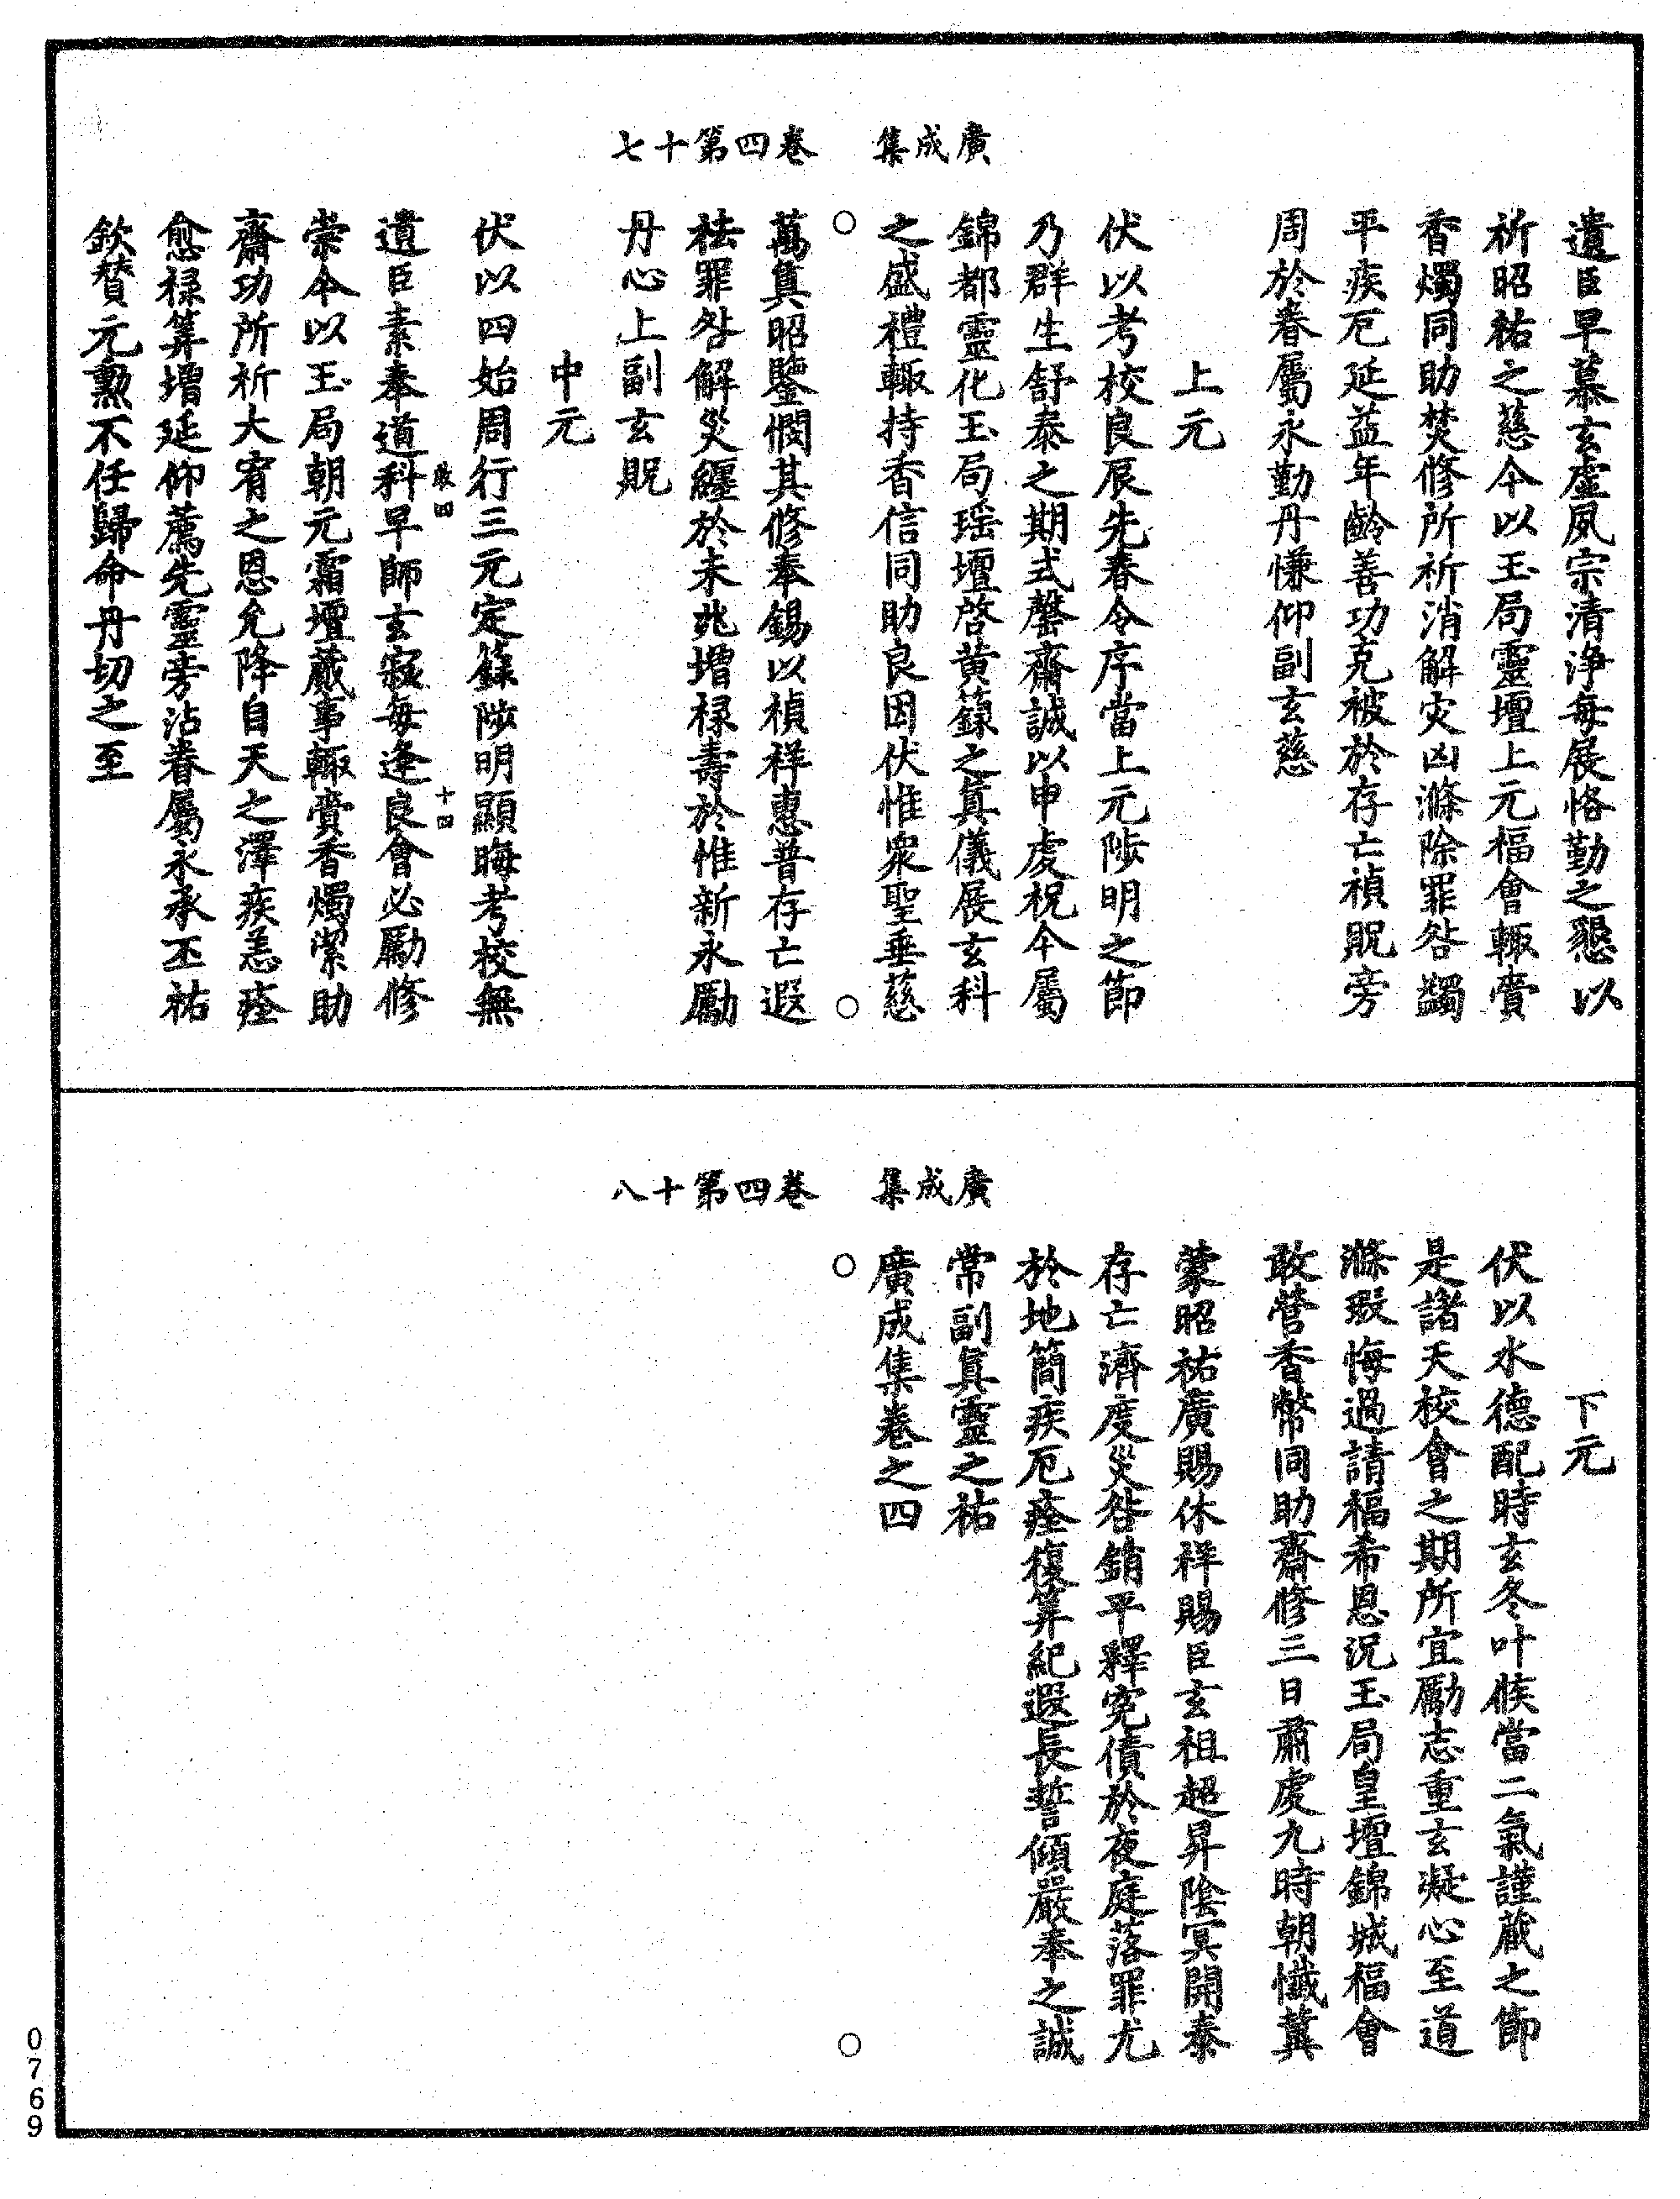 廣成集　卷四第十七
遺臣早慕玄虛夙宗清淨每展恪勤之懇以
祈昭祐之慈今以玉局靈壇上元福會輒賫
香燭同助焚修所祈消解灾凶滌除罪咎蠲
平疾厄延益年齡善功克被於存亡禎貺旁
周於眷屬永勤丹慊仰副玄慈
上元
伏以考校良辰先春令序當上元陟明之節
乃群生舒泰之期式罄齋誠以申虔祝今屬
錦都靈化玉局瑶壇啓黄籙之眞儀展玄科
之盛禮輒持香信同助良因伏惟眾聖垂慈
萬眞昭鑒憫其修奉錫以禎祥惠普存亡遐
祛罪咎解災纏於未兆增禄壽於惟新永勵
丹心上副玄貺
中元
伏以四始周行三元定籙陟明顯晦考校無
敢四
十四
遺臣素奉道科早師玄寂每逢良會必勵修
崇今以玉局朝元霜壇蕆事輒賫香燭潔助
齋功所祈大宥之恩允降自天之澤疾恙痊
愈禄筭增延仰薦先靈旁沾眷屬永承丕祐
欽賛元勲不任歸命丹切之至
廣成集　卷四第十八
下元
伏以水德配時玄冬叶候當二氣謹蕆之節
是諸天校會之期所宜勵志重玄凝心至道
滌瑕悔過請福希恩況玉局皇壇錦城福會
敢營香幣同助齋修三日肅虔九時朝懺冀
蒙昭祐廣賜休祥賜臣玄祖超昇陰冥開泰
存亡濟度災咎銷平釋寃債於夜庭落罪尤
於地簡疾厄痊復筭紀遐長誓傾嚴奉之誠
常副眞靈之祐
廣成集卷之四
0769